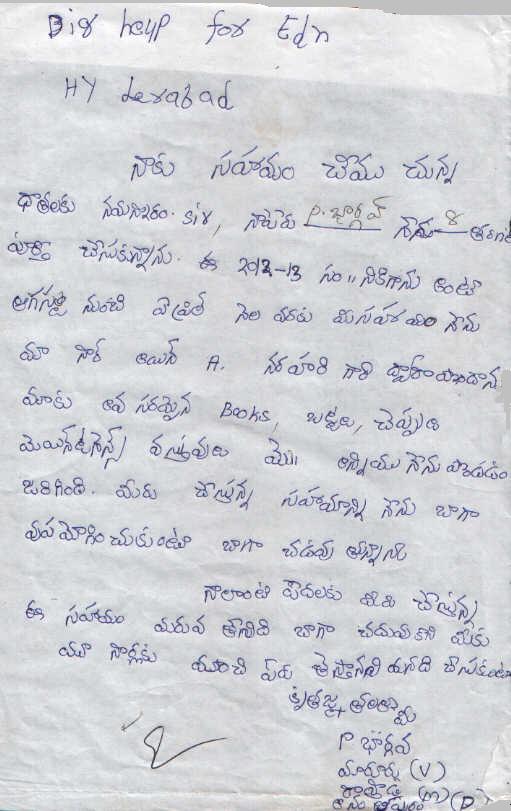 Big help for Edn
HYderabad
నాకు సహాయం చేయు చున్న
దాతలకు నమస్కారం. sir, నాపేరు P. భార్గవ్ నేను 8 తరగతి
పూర్తి చేసుకున్నాను. ఈ 2012-13 సం॥ నికిగాను అంటే
ఆగస్టు నుంచి ఏప్రిల్ నెల వరకు మీ సహాయం నేను
మా సార్ అయిన A. నరహరి గారి ద్వారా
మాకు అవసరమైన Books, బట్టలు, చెప్పులు
మెయిన్‌టెనెన్స్ వస్తువులు మొ॥ అన్నియు నేను పొందడం
జరిగింది. మీరు చేస్తున్న సహాయాన్ని నేను బాగా
వుపయోగించుకుంటూ బాగా చదువుతున్నాను
నాలాంటి పేదలకు మీరు చేస్తున్న
ఈ సహాయం మరువ లేనిది బాగా చదువుకొని మీకు
మా సార్లకు మంచి పేరు తెస్తానని మనవి చేసుకుంటూ
కృతజ్ఞతలతో
P భార్గవ
(V)
(M) (D)